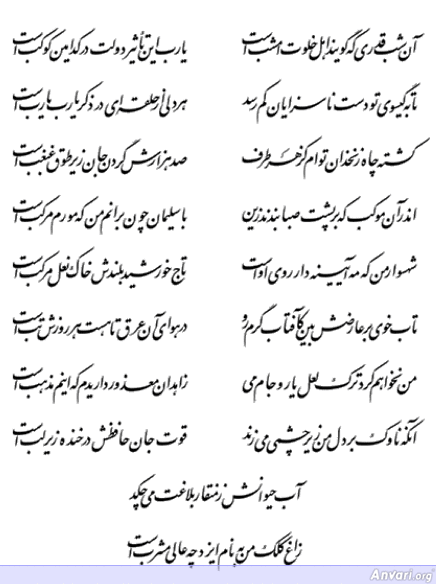 آن شب قدری که گویند اهل خلوت امشب است یارب این تأثیر دولت در کدامین کوکب است
تا به گیسوی تو دست ناسزایان کم رسد هر دلی از حلقه‌ای در ذکر یارب یارب است
کشته چاه زنخدان توام کز هر طرف صد هزارش گردن جان زیر طوق غبغب است
اندر آن موکب که بر پشت صبا بندند زین با سلیمان چون برانم من که مورم مرکب است
شهسوار من که مه آیینه دار روی اوست تاج خورشید بلندش خاک نعل مرکب است
تاب خوی بر عارضش بین کآفتاب گرم رو در هوای آن عرق تا هست هر روزش تب است
من نخواهم کرد ترک لعل یار و جام می زاهدان معذور داریدم که اینم مذهب است
آنکه ناوک بر دل من زیر چشمی می زند قوت جان حافظش در خنده زیر لب است
آب حیوانش ز منقار بلاغت می چکد
زاغ کلک من به نام ایزد چه عالی مشرب است
Anvari.org